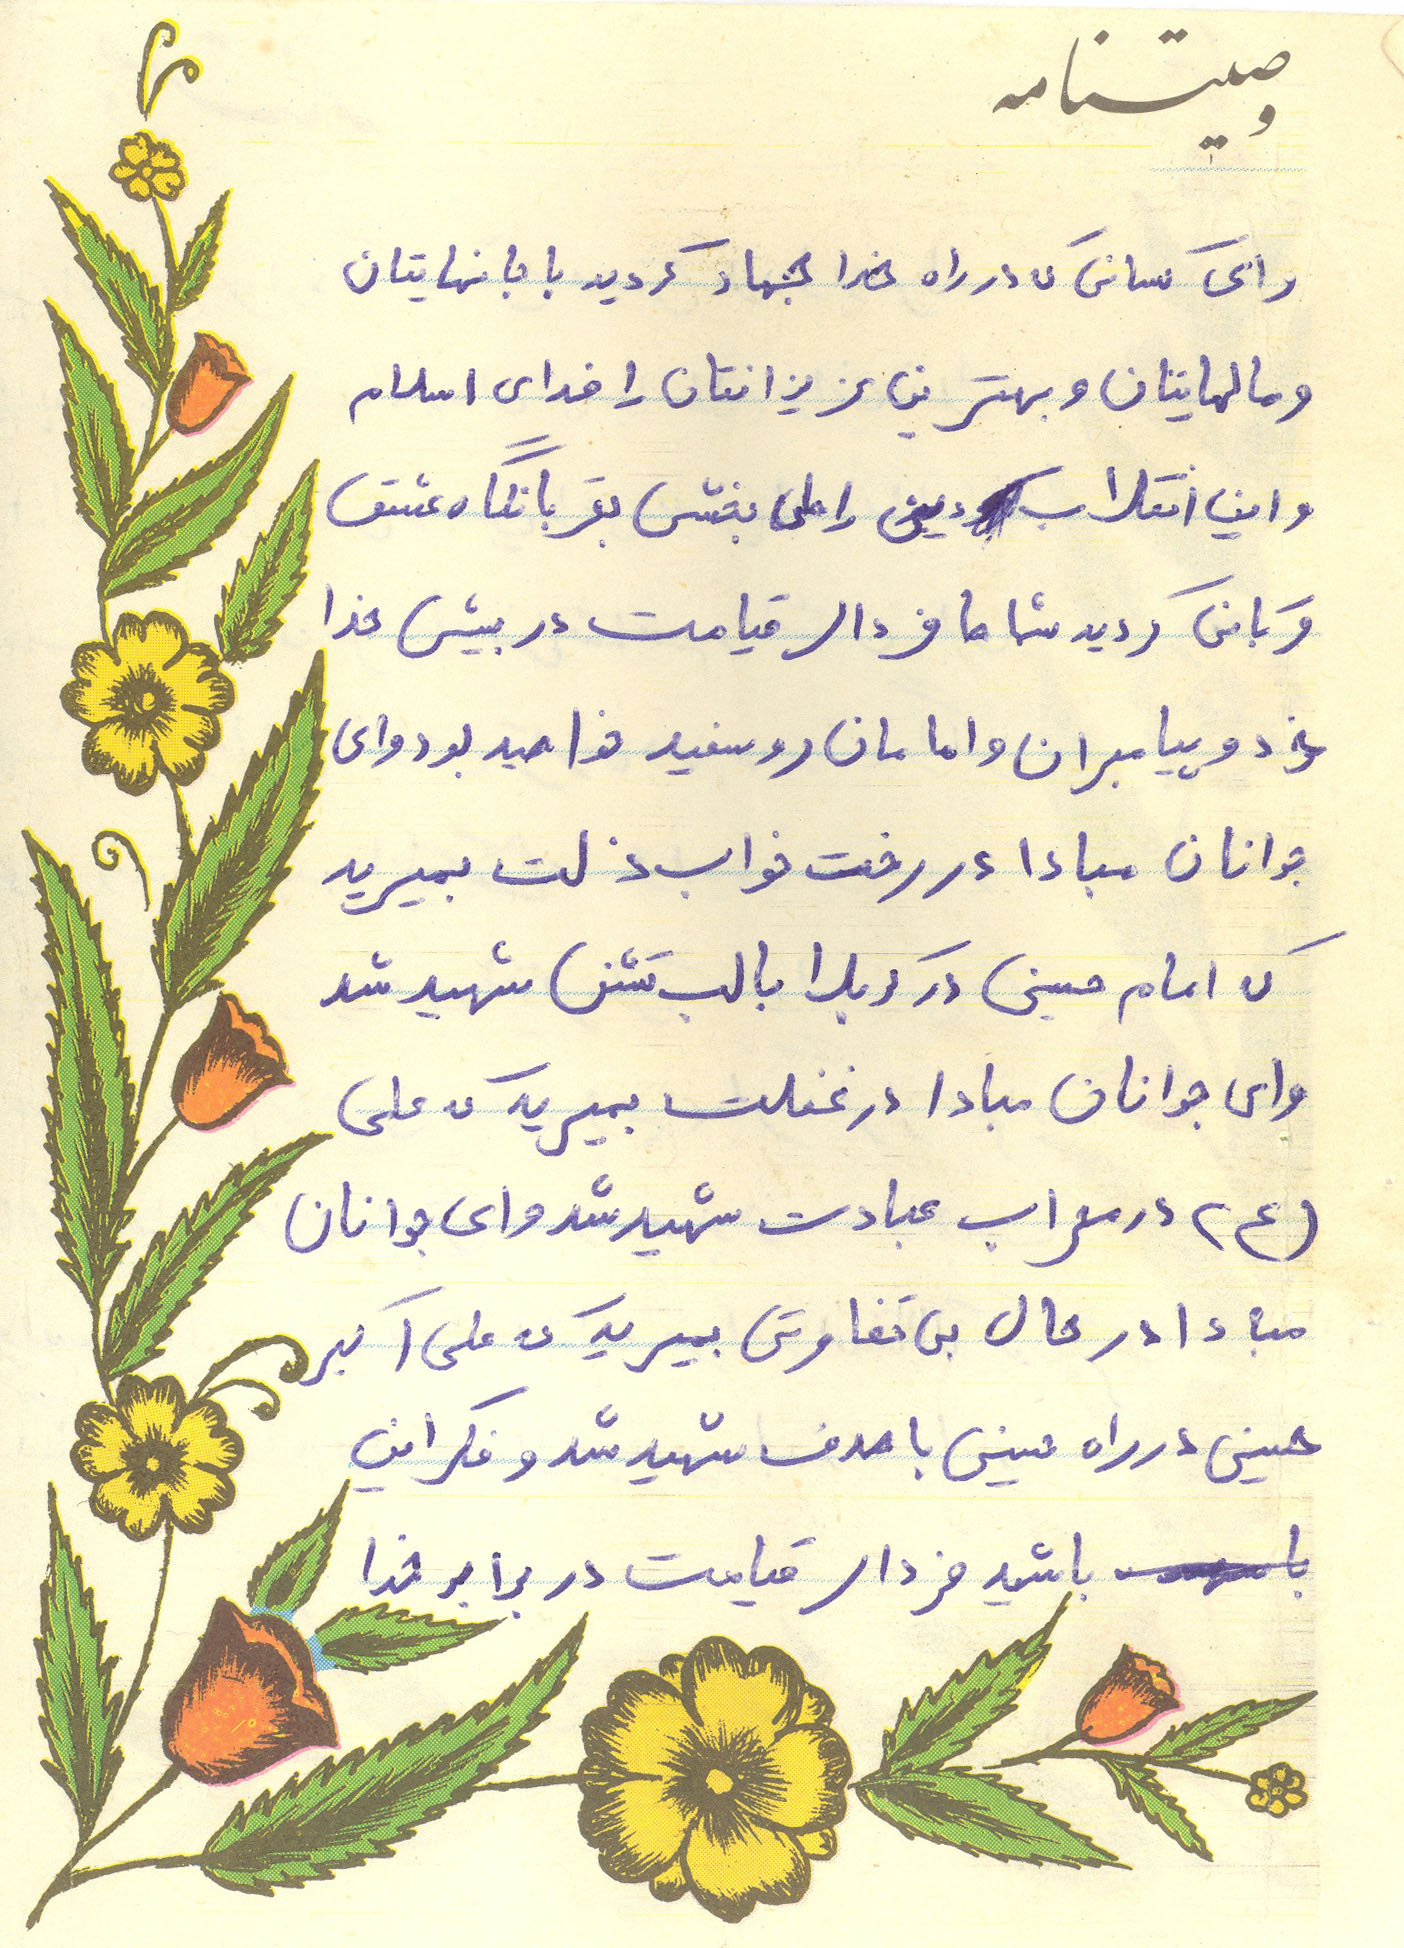 وصیتنامه
وای کسانی که در راه خدا جهاد کردید با جانهایتان
و مالهایتان و بهترین عزیزانتان را فدای اسلام
و این انقلاب دینی رهایی بخش بقربانگاه عشق
قربانی کردید شماها فردای قیامت در پیش خدا
خود و پیامبران و امامان روسفید خواهید بود وای
جوانان مبادا در رخت خواب ذلت بمیرید
که امام حسین در کربلا با لب تشنه شهید شد
وای جوانان مبادا در غفلت بمیرید که علی
(ع) در محراب عبادت شهید شد وای جوانان
مبادا در حال بی تفاوتی بمیرید که علی اکبر
حسین در راه حسین با هدف شهید شد و فکر این
با باشید فردای قیامت در برابر خدا